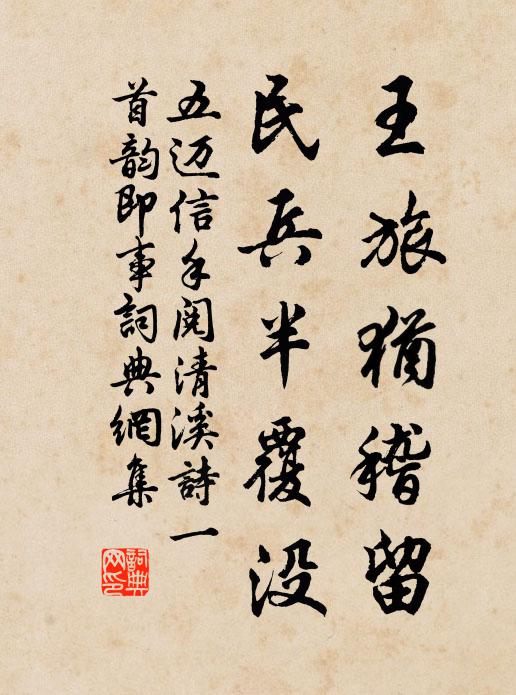 王旅猶稽留
民兵半覆没
五迈信手阅清溪詩一
首韵即事詞典網集
詞典网印